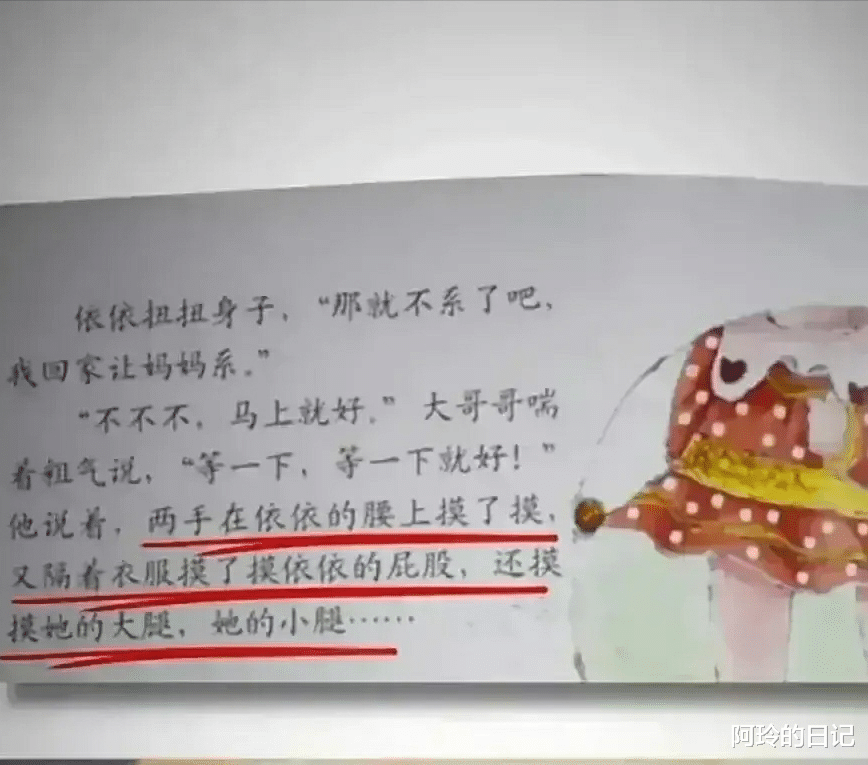 依依扭扭身子，“那就不系了吧，
我回家让妈妈系。”
“不不不，马上就好。”大哥哥喘
着粗气说，“等一下，等一下就好！”
他说着，两手在依依的腰上摸了摸，
又隔着衣服摸了摸依依的屁股，还摸
摸她的大腿，她的小腿……
阿玲的日记